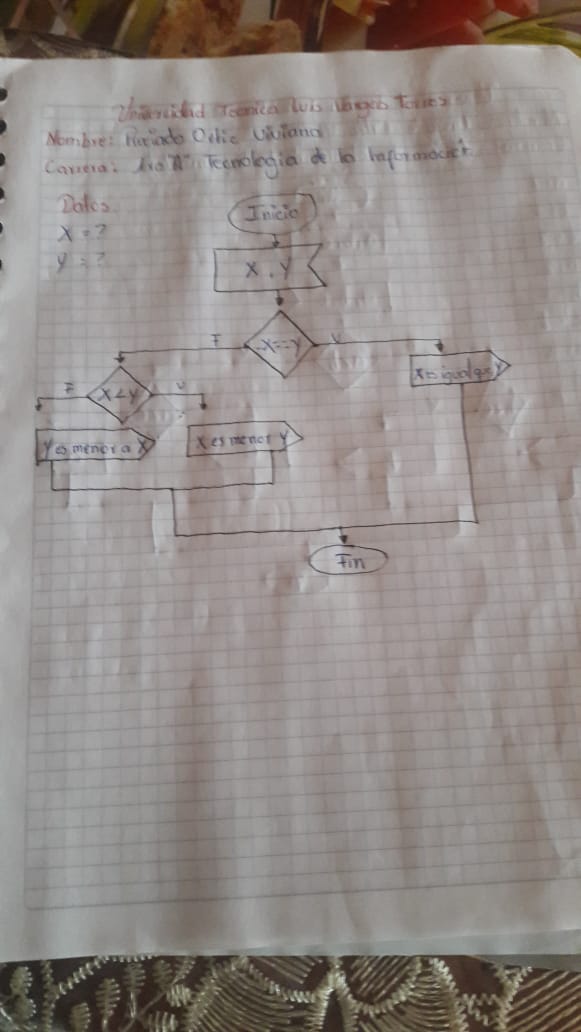 Universidad Tecnica Luis Vargas Torres
Nombre: Viviana
Carrera: "A" Tecnologia de la Informacion
Datos
X = ?
Y = ?
Inicio
X , Y
X==Y
F
V
X<Y
F
V
X es igual que Y
Y es menor a X
X es menor Y
Fin